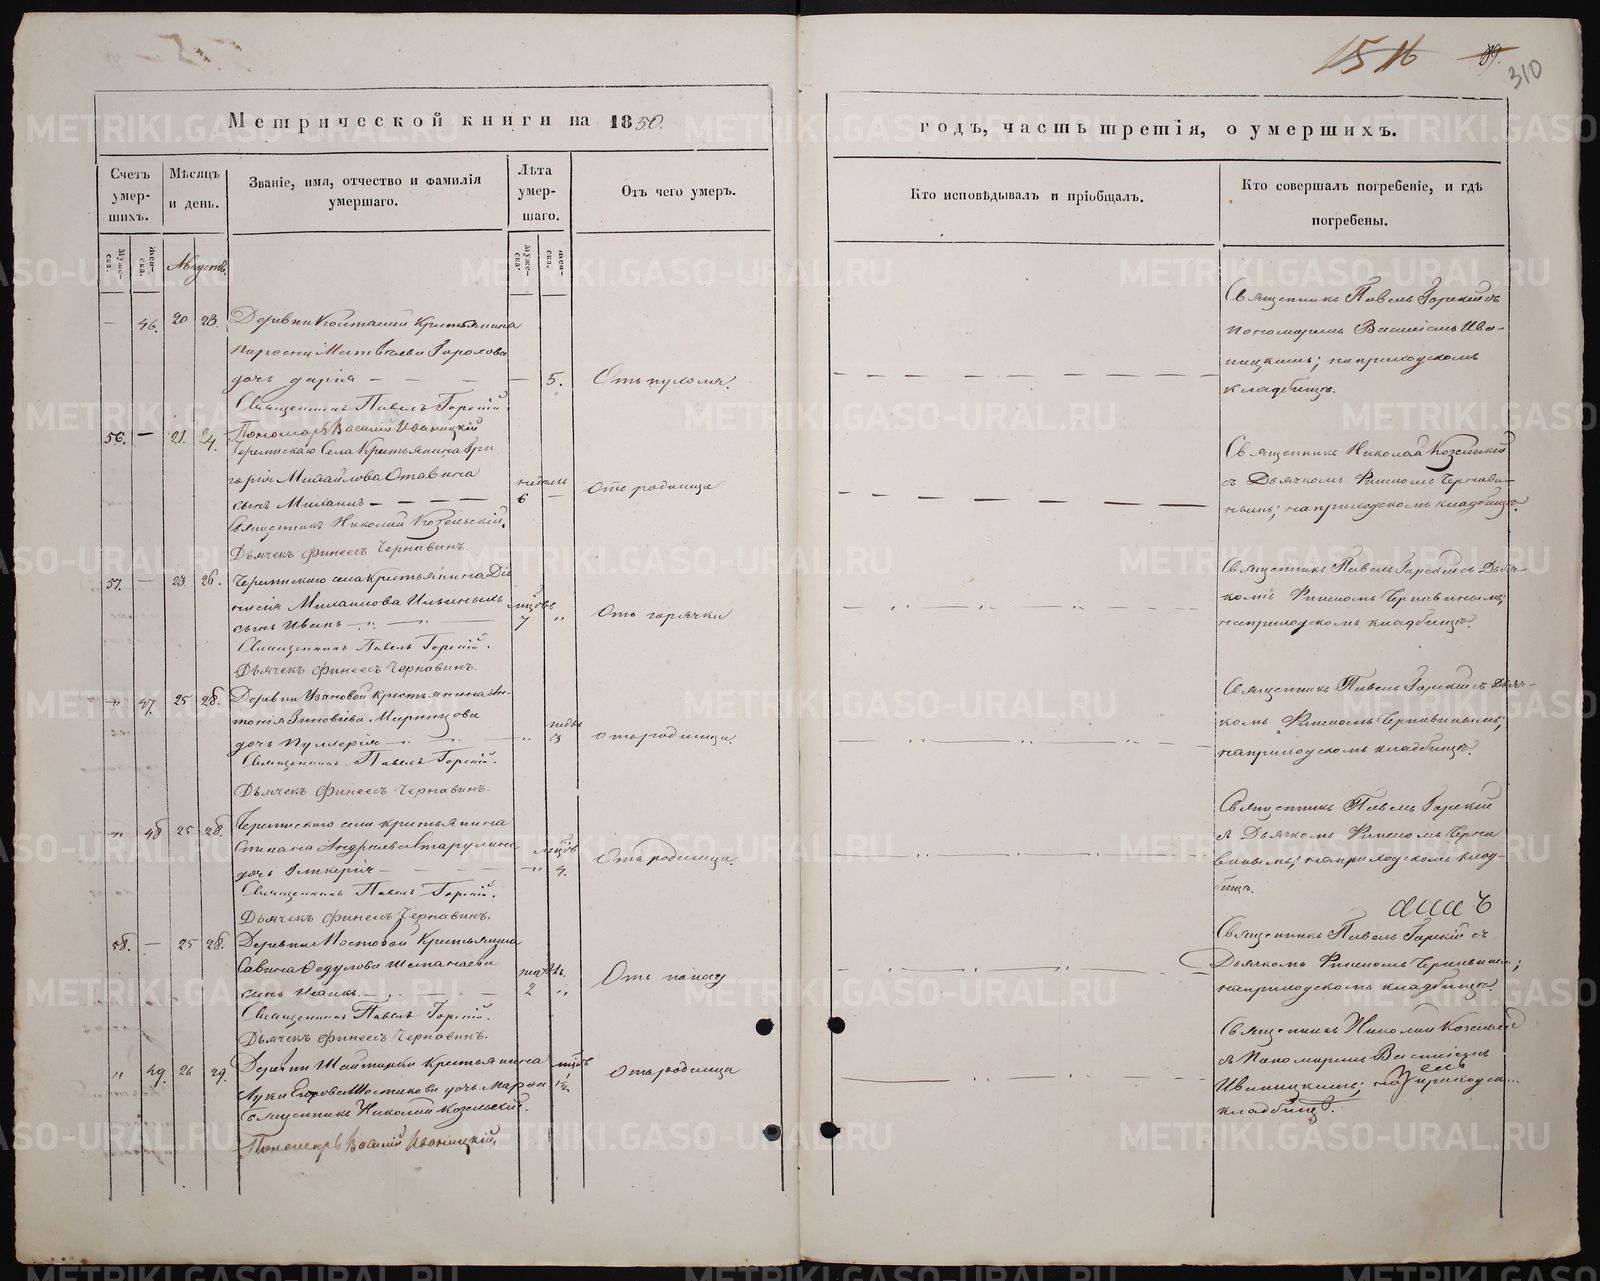 15 16 89. 310
Метрической книги на 1850.
годъ, часть третія, о умершихъ.
Счетъ умер-шихъ.
Мѣсяцъ и день.
Званіе, имя, отчество и фамилія умершаго.
Лѣта умер-шаго.
Отъ чего умеръ.
Кто исповѣдывалъ и пріобщалъ.
Кто совершалъ погребеніе, и гдѣ погребены.
Муже-ска.
Жен-ска.
Муже-ска.
Жен-ска.
Августъ.
— 46. 20 23. Деревни Колташи Крестьянина
Матвѣева
дочь Дарія — — — — 5.
Священникъ Павелъ Горскій.
Пономарь Василій Иваницкій
Священникъ Павелъ Горскій съ
пономаремъ Василіемъ Ива-
ницкимъ; на приходскомъ
кладбищѣ.
56. — 21. 24. Черемискаго Села Крестьянина Гри
горія Михайлова Отавина недель
сынъ Михаилъ — — — — 6 — Отъ родимца
Священникъ Николай Козельскій.
Дьячекъ Финеесъ Чернавинъ.
Священникъ Николай Козельскій
съ Дьячкомъ Финеесомъ Чернави-
нымъ; на приходскомъ кладбищѣ.
57. — 23 26. Черемискаго села Крестьянина Діо
нисія Михаилова Ильиныхъ мцовъ
сынъ Иванъ — 7 „ Отъ горячки
Священникъ Павелъ Горскій.
Дьячекъ Финеесъ Чернавинъ.
Священникъ Павелъ Горскій съ Дьяч-
комъ Финеесомъ Чернавинымъ;
на приходскомъ кладбищѣ.
„ 47. 25 28. Деревни Узяновой крестьянина Ан-
тонія Зиновіева недель
дочь Пулхерія — „ 3 отъ родимца.
Священникъ Павелъ Горскій.
Дьячекъ Финеесъ Чернавинъ.
Священникъ Павелъ Горскій съ Дьяч-
комъ Финеесомъ Чернавинымъ;
на приходскомъ кладбищѣ.
„ 48 25 28. Черемискаго села крестьянина
Степана Андреева Старулина мцовъ
дочь Гликерія — — — — „ 4. Отъ родимца.
Священникъ Павелъ Горскій.
Дьячекъ Финеесъ Чернавинъ.
Священникъ Павелъ Горскій
съ Дьячкомъ Финеесомъ Черна
винымъ; на приходскомъ клад-
бищѣ.
58. — 25 28. Деревни Мостовой Крестьянина
Савина Федулова Шепаната
сынъ Исаакъ — 2 „ Отъ поносу
Священникъ Павелъ Горскій.
Дьячекъ Финеесъ Чернавинъ.
Священникъ Павелъ Горскій съ
Дьячкомъ Финеесомъ Чернавинымъ;
на приходскомъ кладбищѣ.
„ 49. 26 29. Деревни Шайтанки Крестьянина мцовъ
Луки Егорова Шестакова дочь Марѳа 1½ Отъ родимца
Священникъ Николай Козельскій.
Пономарь Василій Иваницкій.
Священникъ Николай Козельскій
съ Пономаремъ Василіемъ
Иваницкимъ; на приходск...
кладбищѣ.